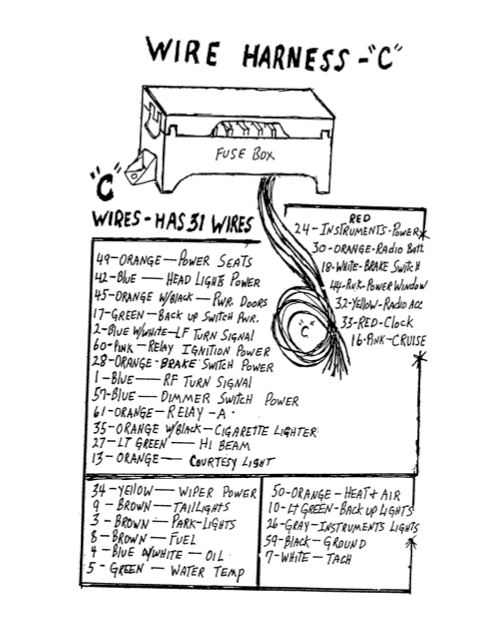 WIRE HARNESS - "C"
FUSE BOX
"C"
WIRES - HAS 31 WIRES
RED
24 - INSTRUMENTS - POWER
30 - ORANGE - Radio Batt
18 - WHITE - BRAKE SWITCH
44 - PINK - POWER WINDOW
32 - YELLOW - RADIO ACC
33 - RED - CLOCK
16 - PINK - CRUISE
"C"
49 - ORANGE - POWER SEATS
42 - BLUE - HEAD LIGHTS POWER
45 - ORANGE W/BLACK - PWR. DOORS
17 - GREEN - BACK UP SWITCH PWR.
2 - BLUE W/WHITE - LF TURN SIGNAL
60 - PINK - RELAY IGNITION POWER
28 - ORANGE - BRAKE SWITCH POWER
1 - BLUE - RF TURN SIGNAL
57 - BLUE - DIMMER SWITCH POWER
61 - ORANGE - RELAY - A.
35 - ORANGE W/BLACK - CIGARETTE LIGHTER
27 - LT GREEN - HI BEAM
13 - ORANGE - COURTESY LIGHT
34 - YELLOW - WIPER POWER
9 - BROWN - TAILLIGHTS
3 - BROWN - PARK-LIGHTS
8 - BROWN - FUEL
4 - BLUE W/WHITE - OIL
5 - GREEN - WATER TEMP
50 - ORANGE - HEAT + AIR
10 - LT GREEN - BACK UP LIGHTS
26 - GRAY - INSTRUMENTS LIGHTS
59 - BLACK - GROUND
7 - WHITE - TACH